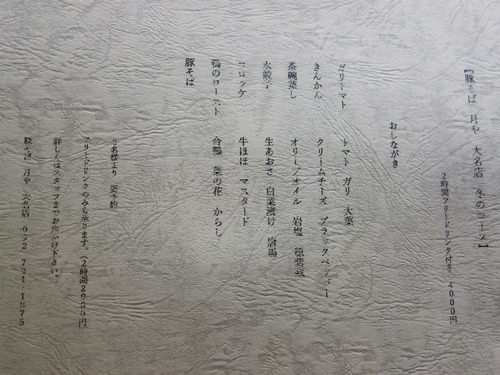 【豚そば 月や 大名店 冬のコース】
2時間フリードリンク付き 4000円
おしながき
ガリトマト トマト ガリ 大葉
きんかん クリームチーズ ブラックペッパー
茶碗蒸し オリーブオイル 岩塩
水餃子 生あおさ 白菜漬け
コロッケ 牛ほほ マスタード
鴨のロースト 合鴨 菜の花 からし
豚そば
2名様より 要予約
フリードリンクのみも承ります。(2時間2000円)
詳しくはスタッフまでお声かけ下さい。
豚そば 月や 大名店 092